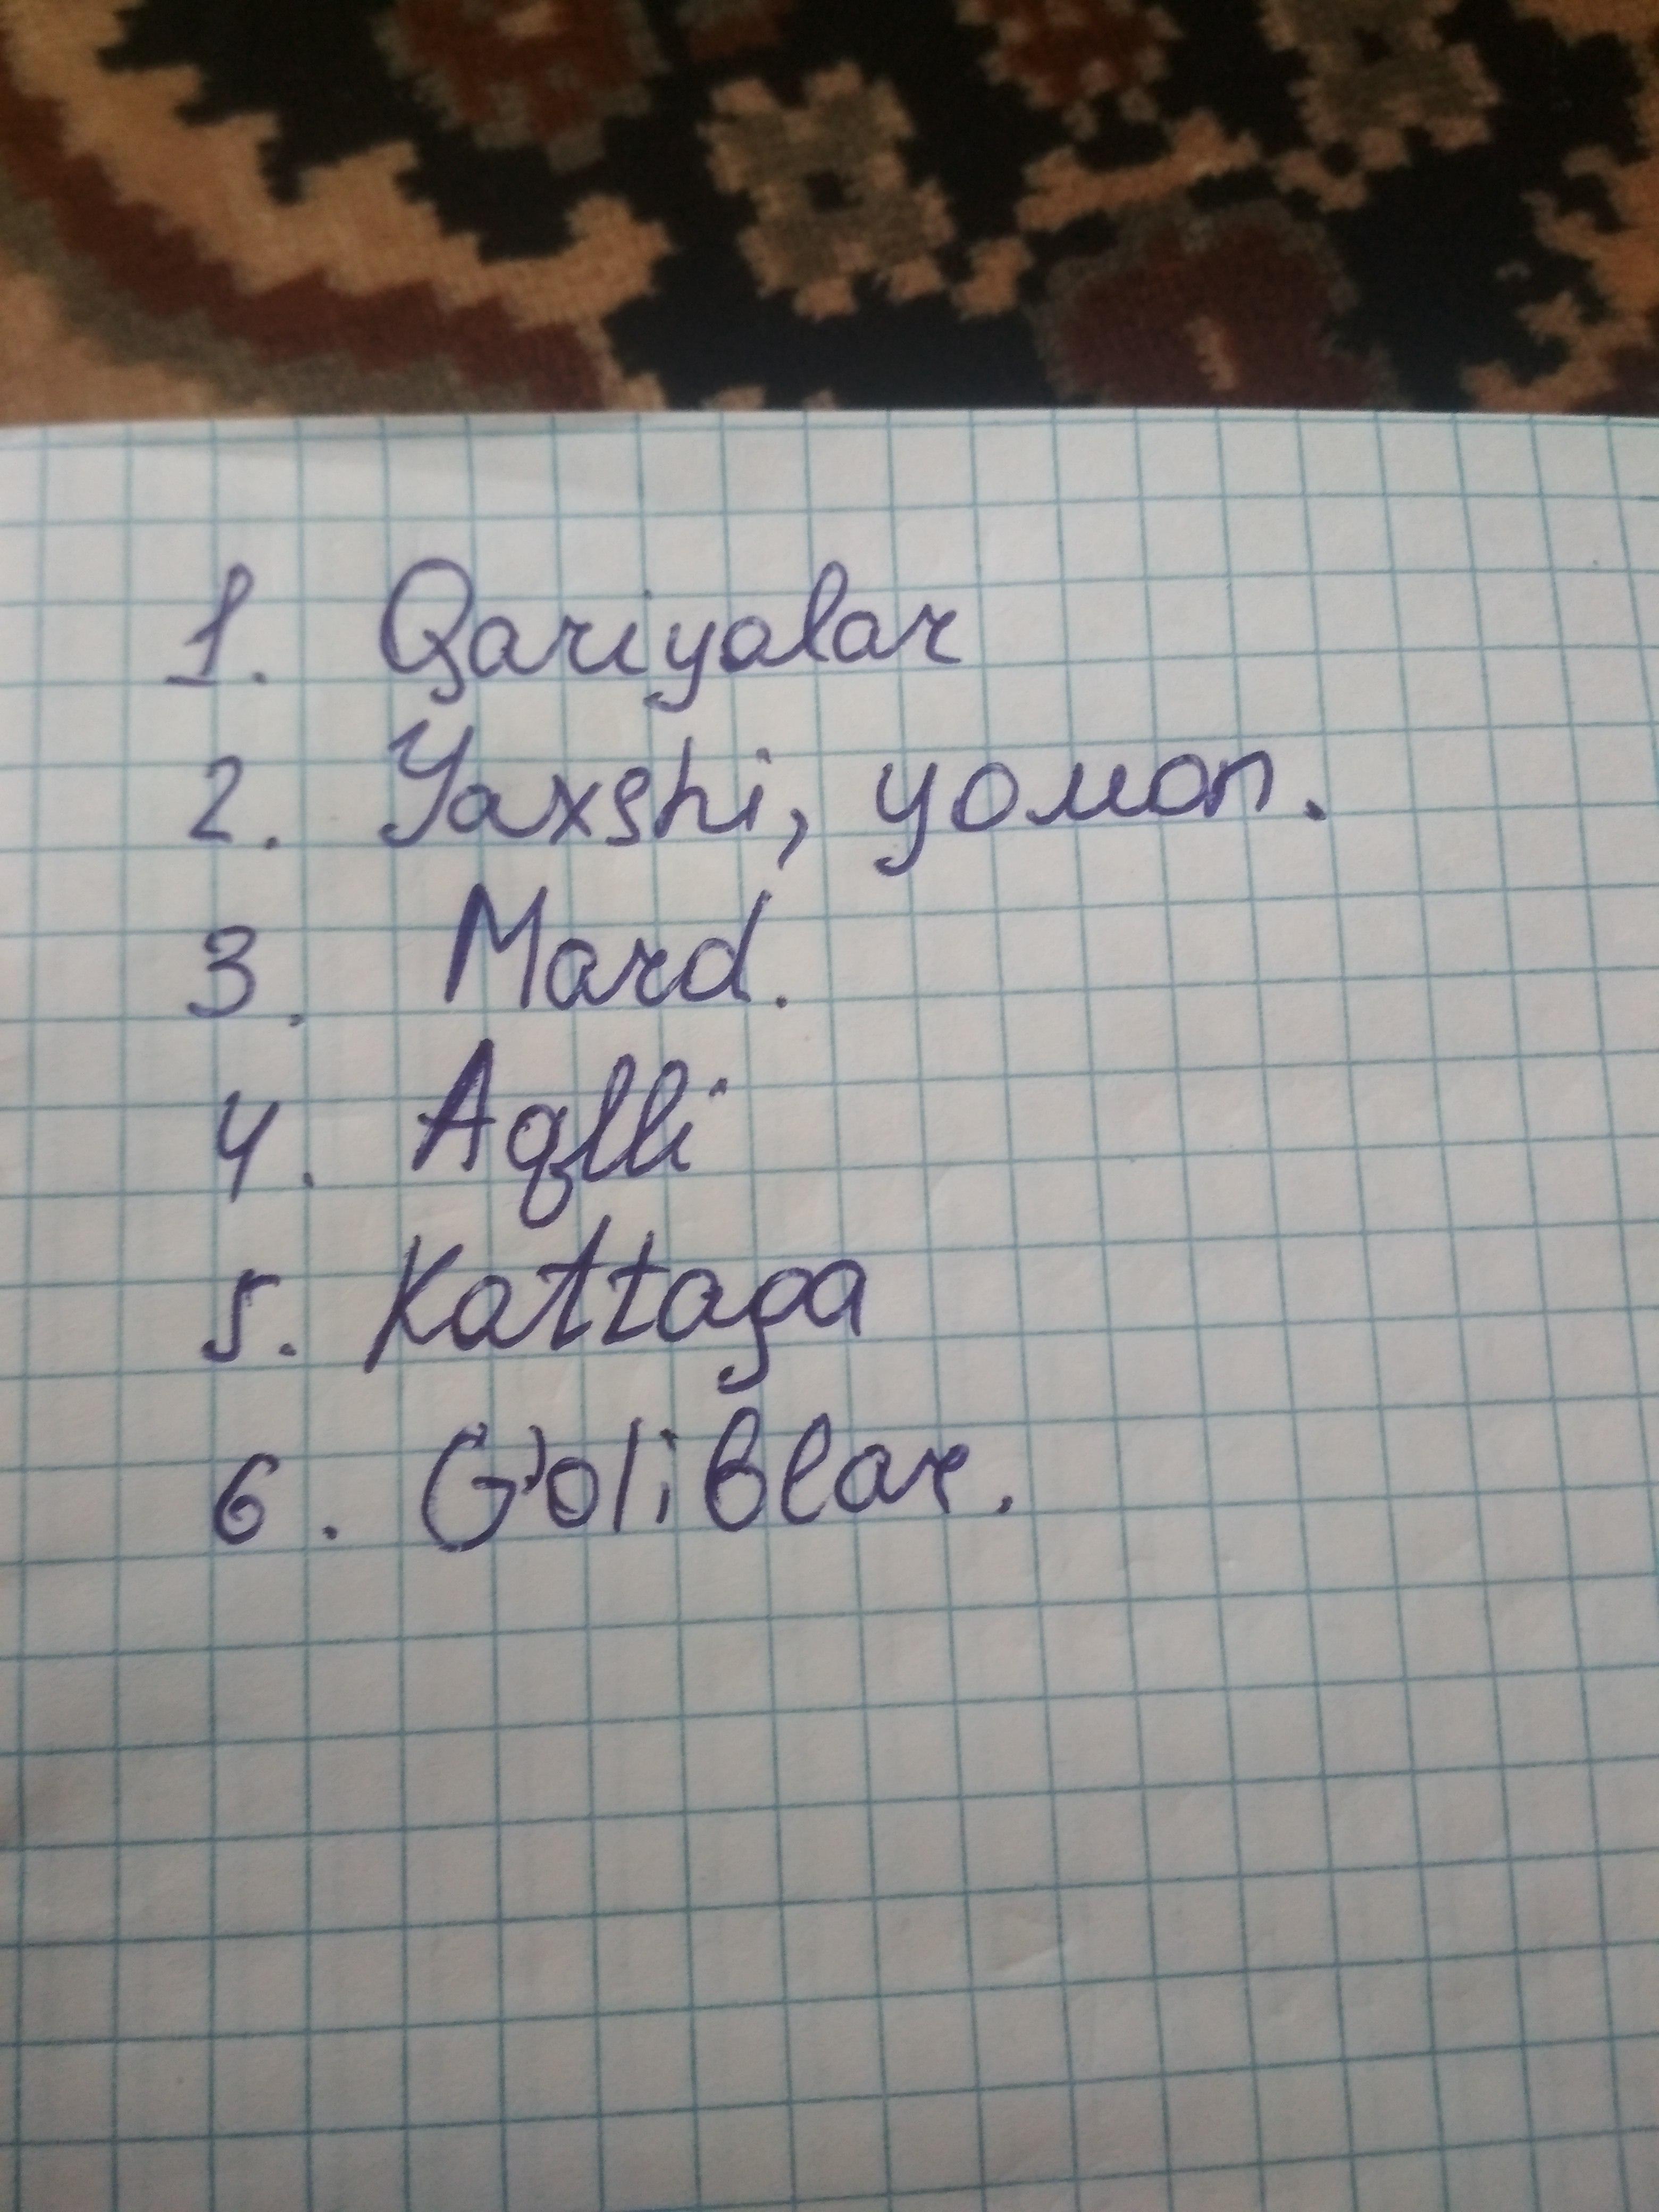 1. Qariyalar
2. Yaxshi, yomon.
3. Mard.
4. Aqlli
5. Kattaga
6. G'oliblar.